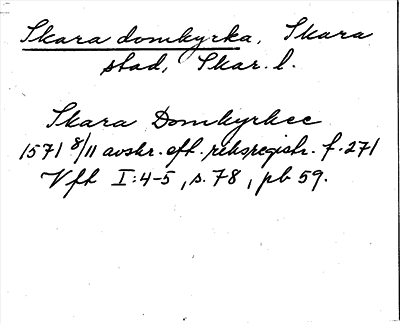 Skara domkyrka, Skara
stad, Skar. l.
Skara Domkyrkee
1571 8/11 avskr. eft. riksregistr. f. 271
Vft I:4-5, s. 78, pb 59.